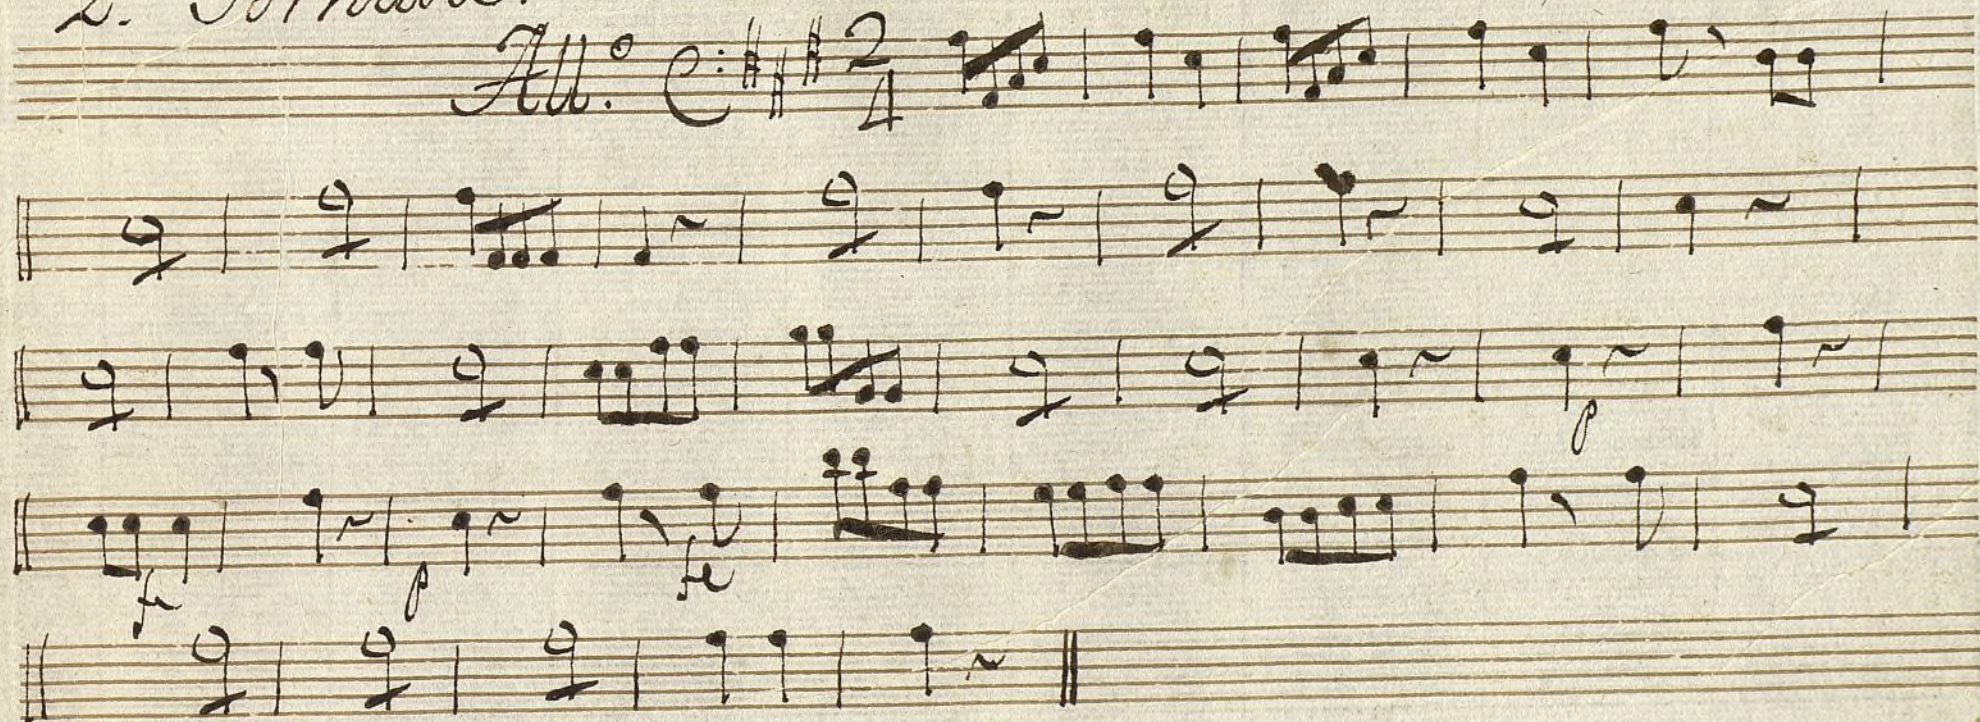 2.
All.o 2/4
p
fe p fe